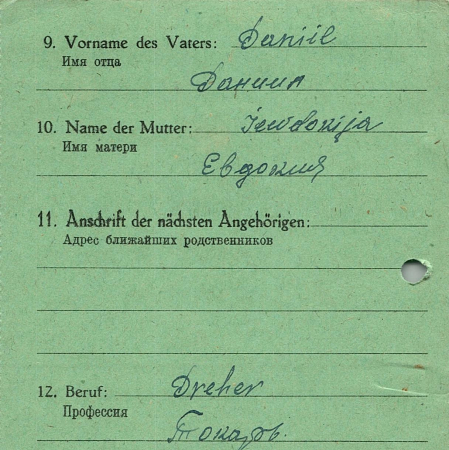 9. Vorname des Vaters: Daniil
Имя отца
Даниил
10. Name der Mutter: Jewdokija
Имя матери
Евдокия
11. Anschrift der nächsten Angehörigen:
Адрес ближайших родственников
12. Beruf: Dreher
Профессия
Токарь.